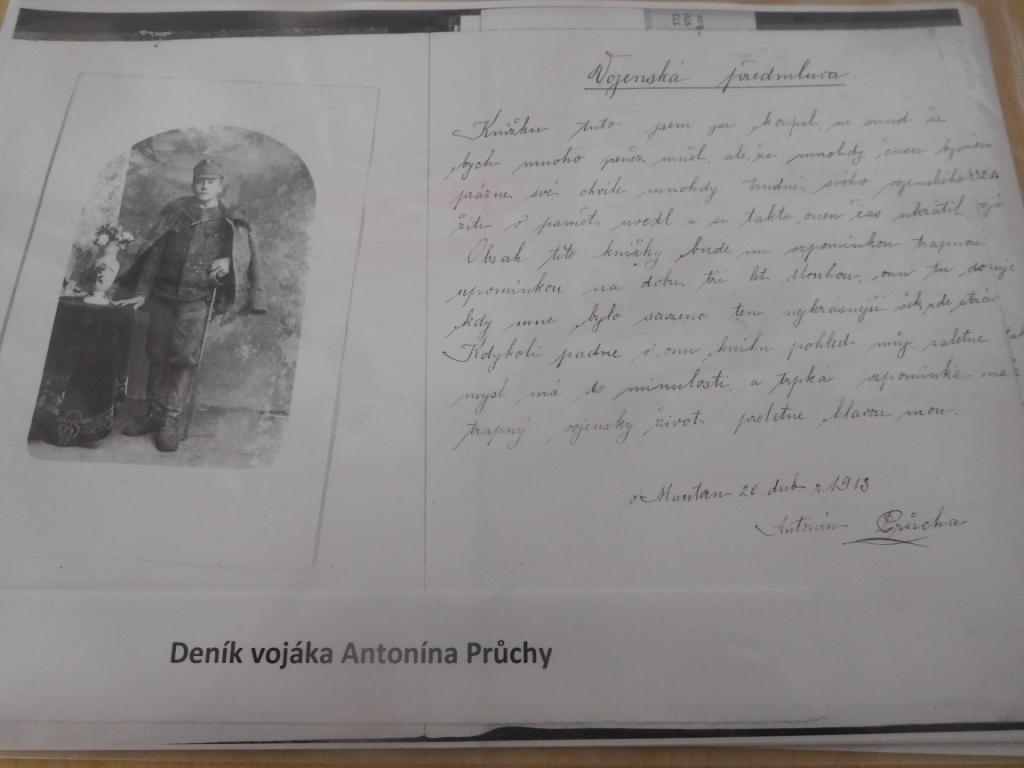 Vojenská předmluva
Knížku tuto jsem jsi koupil, ne snad že
bych mnoho peněz měl, ale, že mnohdy času
prázné své chvíle mnohdy trudné svého vojenského
žití v paměť uvedl a si takto onen čas ukrátil
Obsah této knížky bude mi vzpomínkou trapnou
upomínkou na dobu tří let dlouhou, onu tu
kdy mne bylo souzeno ten nejkrásnější věk zde
Kdykoli padne v onu knihu pohled můj zaletne
mysl má do minulosti a trpká vzpomínka na
trapný vojenský život proletne hlavou mou.
v Mautern 20 dub. r. 1913
Antonín Průcha
Deník vojáka Antonína Průchy